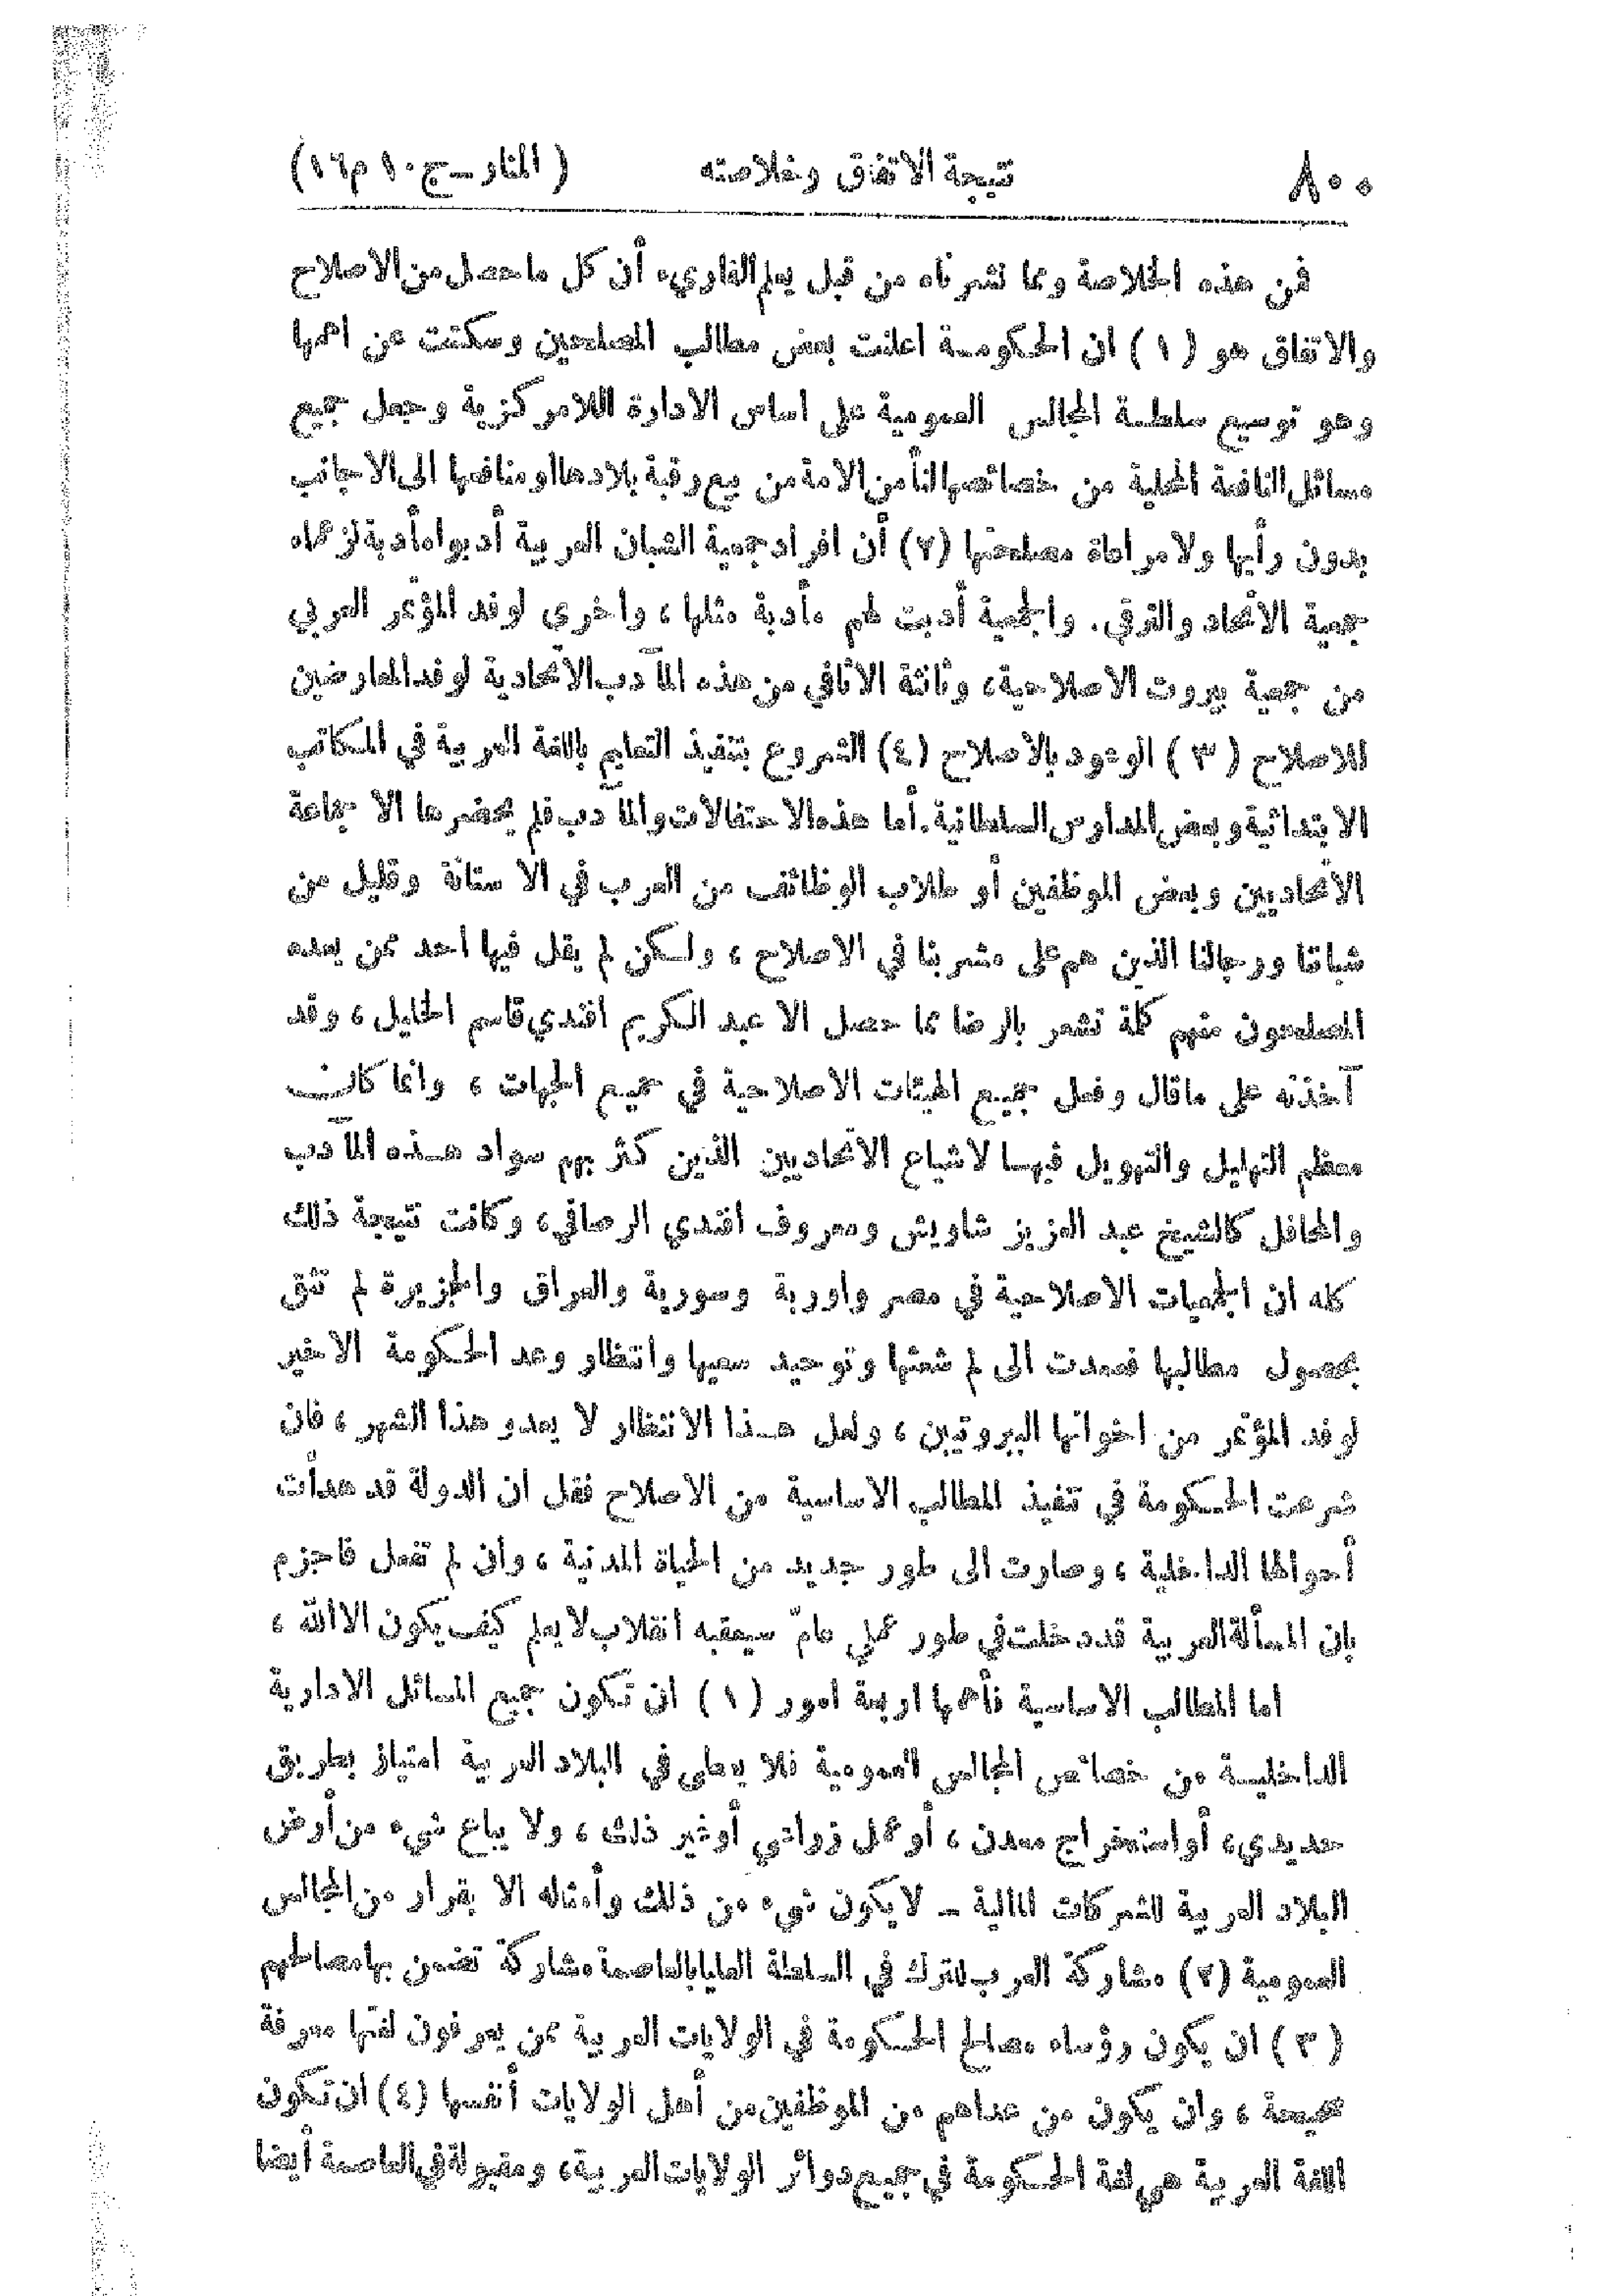 ٨٠٠ نتيجة الاتفاق وخلاصته (المنار ـ ج١٠ م١٦)
فمن هذه الخلاصة ومما نشرناه من قبل يعلم القاريء أن كل ما حصل من الاصلاح
والاتفاق هو (١) ان الحكومة اعلنت بعض مطالب المصلحين وسكتت عن اهمها
وهو توسيع سلطة المجالس العمومية على اساس الادارة اللامركزية وجعل جميع
مسائل النافعة المحلية من خصائصها لتأمن الامة من بيع رقبة بلادها أو منافعها الى الاجانب
بدون رأيها ولا مراعاة مصلحتها (٢) أن افراد جمعية الشبان العربية أدبوا مأدبة لزعماء
جمعية الاتحاد والترقي. والجمعية أدبت لهم مأدبة مثلها، واخرى لوفد المؤتمر العربي
من جمعية بيروت الاصلاحية، وثالثة الاثافي من هذه المآدب الاتحادية لوفد المعارضين
للاصلاح (٣) الوعود بالاصلاح (٤) الشروع بتنفيذ التعليم باللغة العربية في المكاتب
الابتدائية وبعض المدارس السلطانية. أما هذه الاحتفالات والمآدب فلم يحضرها الا جماعة
الاتحاديين وبعض الموظفين أو طلاب الوظائف من العرب في الاستانة وقليل من
شباننا ورجالنا الذين هم على مشربنا في الاصلاح، ولكن لم يقل فيها احد ممن يعده
المصلحون منهم كلمة تشعر بالرضا مما حصل الا عبد الكريم افندي قاسم الخليل، وقد
آخذته على ماقال وفعل جميع الهيئات الاصلاحية في جميع الجهات، وانما كان
معظم التهليل والتهويل فيها لاشياع الاتحاديين الذين كثر بهم سواد هذه المآدب
والمحافل كالشيخ عبد العزيز شاويش ومعروف افندي الرصافي، وكانت نتيجة ذلك
كله ان الجمعيات الاصلاحية في مصر واوربة وسورية والعراق والجزيرة لم تثق
بحصول مطالبها فعمدت الى لم شعثها وتوحيد سعيها وانتظار وعد الحكومة الاخير
لوفد المؤتمر من اخوانها البيروتيين، ولعل هذا الانتظار لا يعدو هذا الشهر، فان
شرعت الحكومة في تنفيذ المطالب الاساسية من الاصلاح فقل ان الدولة قد هدأت
أحوالها الداخلية، وصارت الى طور جديد من الحياة المدنية، وان لم تفعل فاجزم
بان المسألة العربية قد دخلت في طور عملي عامّ سيعقبه انقلاب لا يعلم كيف يكون الا الله،
اما المطالب الاساسية فأهمها اربعة امور (١) ان تكون جميع المسائل الادارية
الداخلية من خصائص المجالس العمومية فلا يعطى في البلاد العربية امتياز بطريق
حديدي، أو استخراج معدن، أو عمل زراعي أو غير ذلك، ولا يباع شيء من أرض
البلاد العربية للشركات المالية ـ لا يكون شيء من ذلك وأمثاله الا بقرار من المجالس
العمومية (٢) مشاركة العرب للترك في السلطة العليا بالعاصمة مشاركة تضمن بها مصالحهم
(٣) ان يكون رؤساء مصالح الحكومة في الولايات العربية ممن يعرفون لغتها معرفة
صحيحة، وان يكون من عداهم من الموظفين من أهل الولايات أنفسها (٤) ان تكون
اللغة العربية هي لغة الحكومة في جميع دوائر الولايات العربية، ومقبولة في العاصمة أيضا